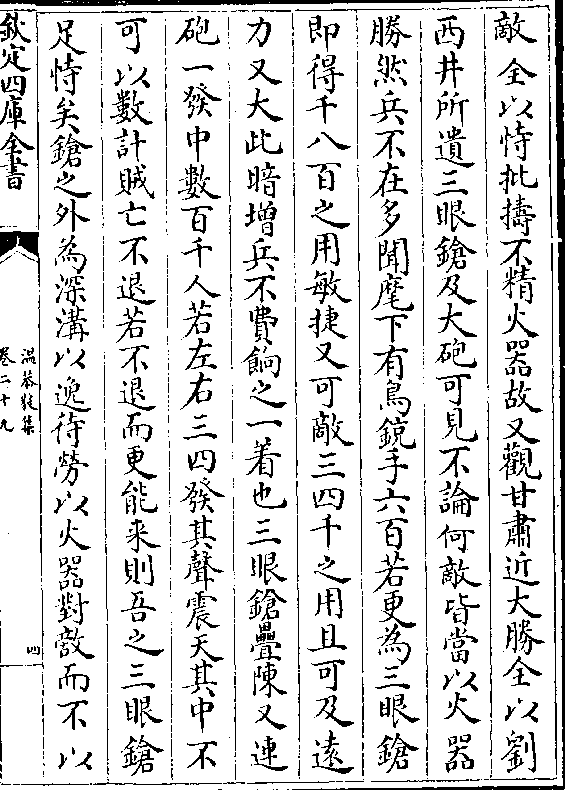 敵全以恃批擣不精火器故又觀甘肅近大勝全以劉
西井所遺三眼鎗及大砲可見不論何敵皆當以火器
勝然兵不在多聞麾下有鳥鏡手六百若更為三眼鎗
即得千八百之用敏捷又可敵三四千之用且可及逺
力又大此暗增兵不費餉之一着也三眼鎗疊陳又連
砲一發中數百千人若左右三四發其聲震天其中不
可以數計賊亡不退若不退而更能来則吾之三眼鎗
足恃矣鎗之外為深溝以逸待勞以火器對敵而不以
欽定四庫全書
温恭毅集
卷二十九
四